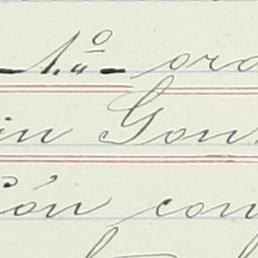 1.º ord
in Gon
ión con